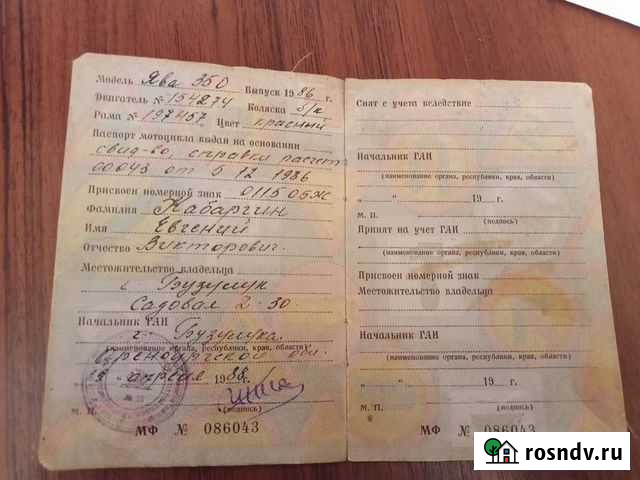 Модель Ява 350 Выпуск 1986 г.
Двигатель № 154274 Коляска б/к
Рама № 197457 Цвет красный
Паспорт мотоцикла выдан на основании
свид-во, справки расчет
00043 от 5 12 1986
Присвоен номерной знак 0115 ОБЖ
Фамилия Кабаргин
Имя Евгений
Отчество Викторович.
Местожительство владельца
г. Бузулук
Садовая 2-30
Начальник ГАИ г. Бузулука.
(наименование органа, республики, края, области)
Оренбургской обл.
апреля 1988 г.
М. П. (подпись)
МФ № 086043
Снят с учета вследствие
Начальник ГАИ
(наименование органа, республики, края, области)
„ “ 19 г.
М. П. (подпись)
Принят на учет ГАИ
(наименование органа, республики, края, области)
Присвоен номерной знак
Местожительство владельца
Начальник ГАИ
(наименование органа, республики, края, области)
„ “ 19 г.
М. П. (подпись)
МФ № 086043
rosndv.ru